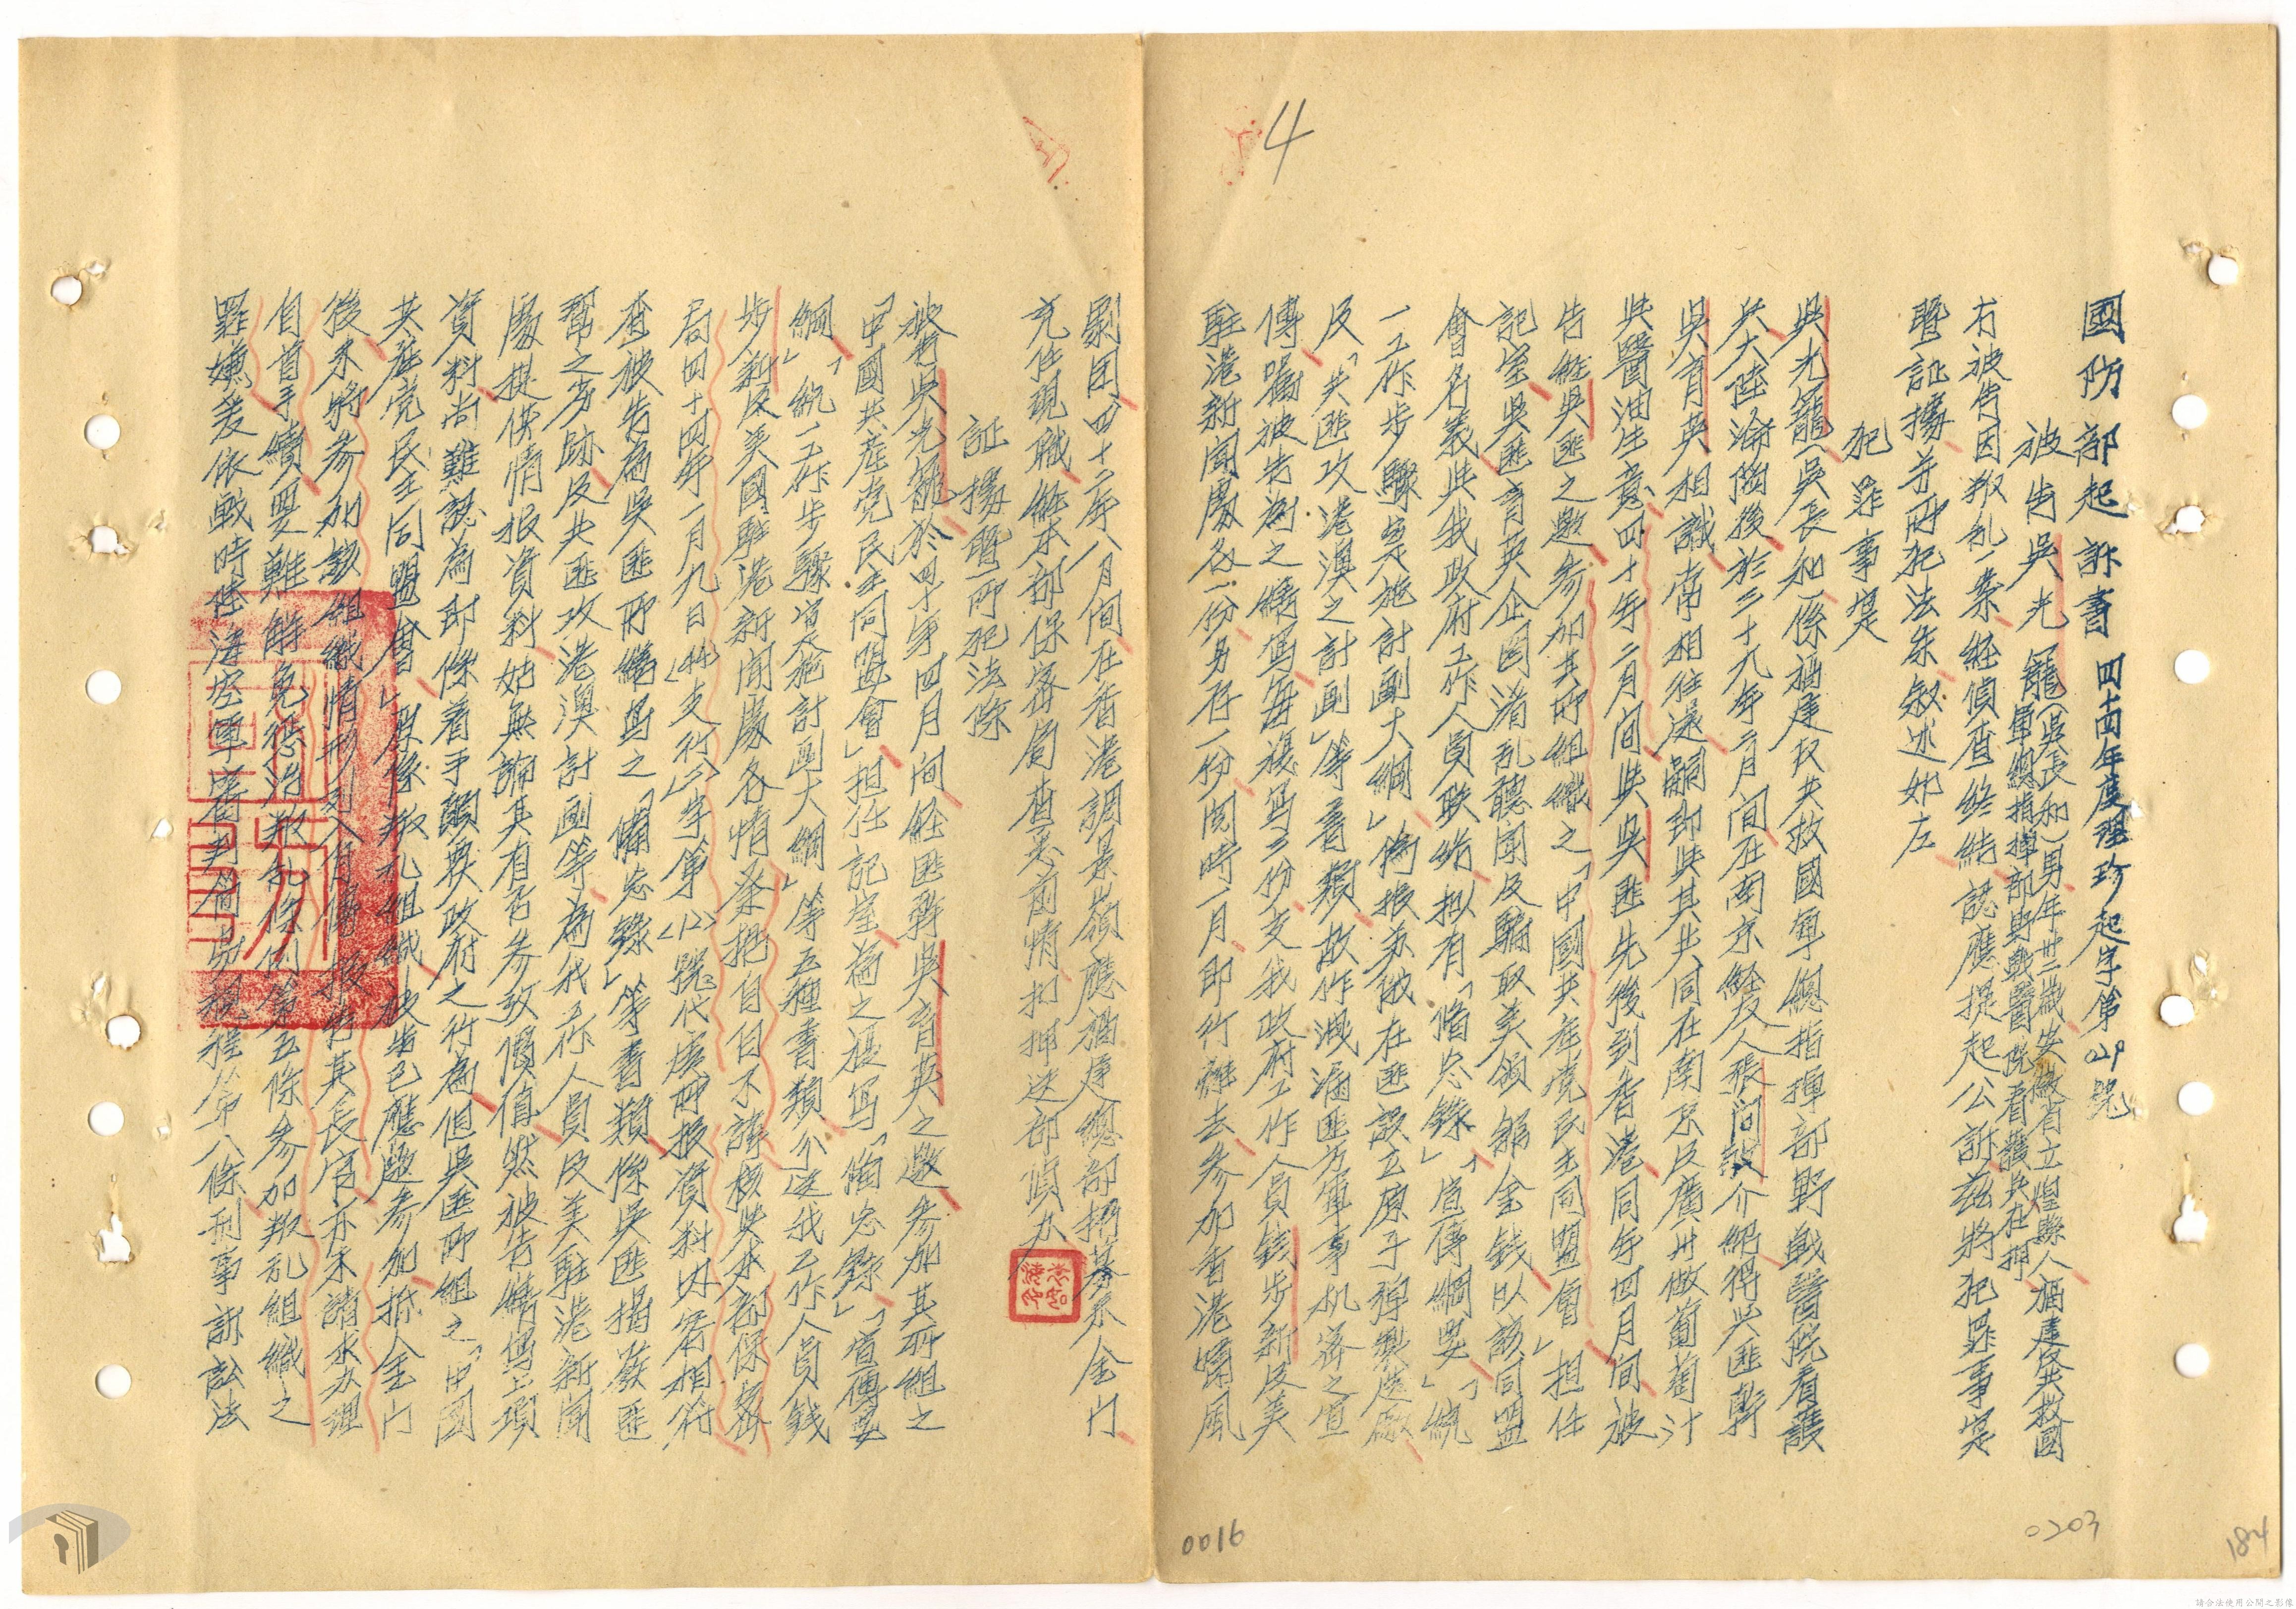 國防部起訴書 四十四年度理珍起字第029號
被告吳光籠(吳長和)男年卅二歲安徽省立煌縣人福建反共救國
軍總指揮部野戰醫院看護兵在押
右被告因叛乱一案經偵查終結認應提起公訴茲將犯罪事實
暨証據并所犯法条叙述如左
犯罪事實
吳光籠(吳長和)係福建反共救國軍總指揮部野戰醫院看護
兵大陸淪陷後於三十九年二月間在南京經友人張問政介紹得與匪幹
吳育英相識常相往還嗣即與其共同在南京及廣州做葡萄汁
與醬油生意四十年二月間與吳匪先後到香港同年四月間被
告經吳匪之邀參加其所組織之「中國共產党民主同盟會」担任
記室吳匪育英企圖淆乱聽聞及騙取美領館金錢以該同盟
會名義與我政府工作人員联絡拟有「俻忘錄」「宣傳綱要」「統
一工作步驟實施計劃大綱」偽报苏俄在匪設立原子彈製造廠
及「共匪攻港澳之計劃」等書類故作洩漏匪方軍事机密之宣
傳囑被告為之繕寫每複寫三份交我政府工作人員錢步新及美
駐港新聞處各一份另存一份閱時一月即行離去參加香港嚼風
劇团四十二年八月間在香港調景嶺應福建總部招募來金門
充任現職經本部保密局查悉前情扣押送部偵办
証據暨所犯法條
被告吳光籠於四十年四月間經匪幹吳育英之邀參加其所組之
「中國共產党民主同盟會」担任記室為之複寫「俻忘錄」「宣傳要
綱」「統一工作步驟實施計劃大綱」等五種書類分送我工作人員錢
步新及美國駐港新聞處各情業據自白不諱核與本部保密
局四十四年一月九日(44)支行(二)字第(12)號代電所报資料內容相符
查被告為吳匪所繕寫之「俻忘錄」等書類係吳匪揭發匪
幫之劣跡及共匪攻港澳計劃等為我工作人員及美駐港新聞
處提供情报資料姑無論其有否參攷價值然被告繕寫上項
資料尚難認為即係着手顛覆政府之行為但吳匪所組之「中國
共產党民主同盟會」原係叛乱組織被告已應邀參加拵金門
後未將參加該組織情形列入自傳报告其長官亦未請求办理
自首手續要難解免懲治叛乱條例第五條參加叛乱組織之
罪嫌爰依戰時陸海空軍審判簡易規程第八條刑事訴訟法
4
0016
0203
184
請合法使用公開之影像